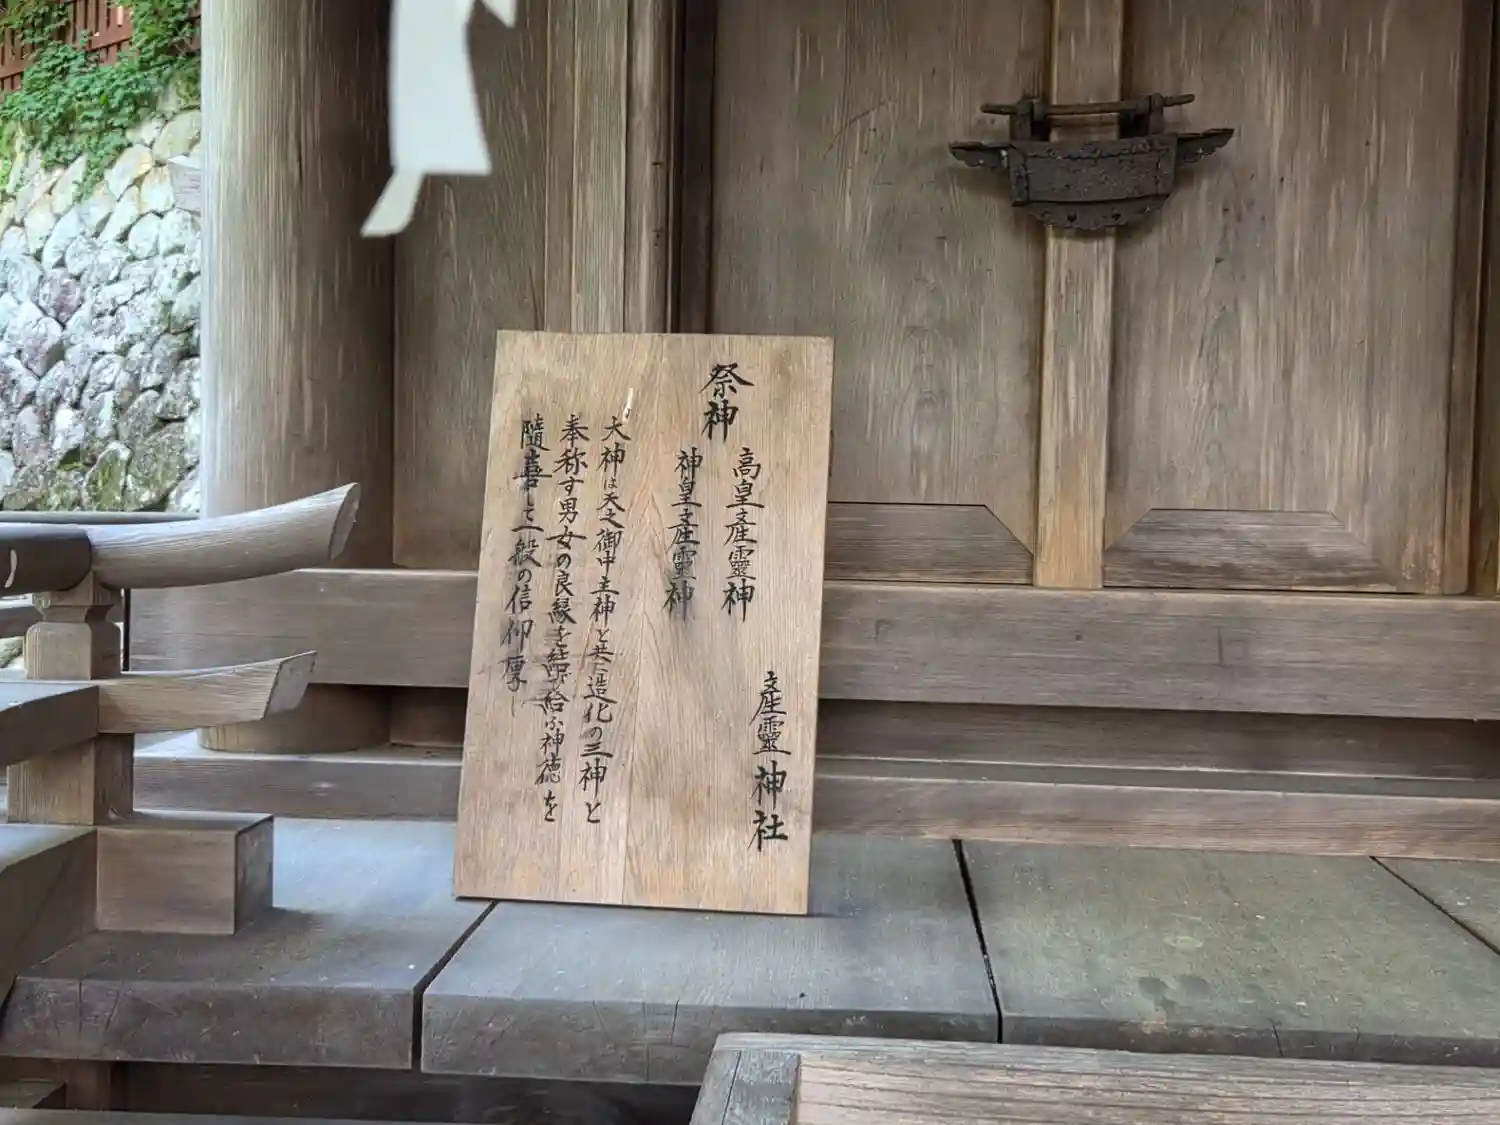 産靈神社
祭神
高皇産靈神
神皇産靈神
大神は天之御中主神と共に造化の三神と
奉称す男女の良縁を結び給ふ神徳を
隨喜して一般の信仰厚し